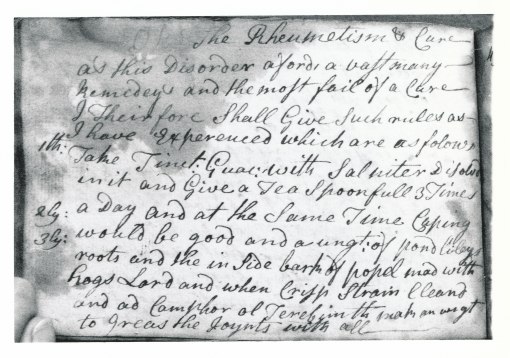 The Rheumetism & Cure
as this Disorder afords a vast many
Remedeys and the most fail of a Cure
I Their fore Shall Give Such rules as
I have Experenced which are as folows
1th: Take Tinct: Guac: with Salniter Disolvd
in it and Give a Tea Spoonfull 3 Times
2ly: a Day and at the Same Time Cuping
3ly: would be good and a ungt: of pond lileys
roots and the in Side bark of popel mad with
hogs Lard and when Crisp Strain Cleand
and ad Camphor ol Tereb in th mak an ungt
to Greas the Joynts with all